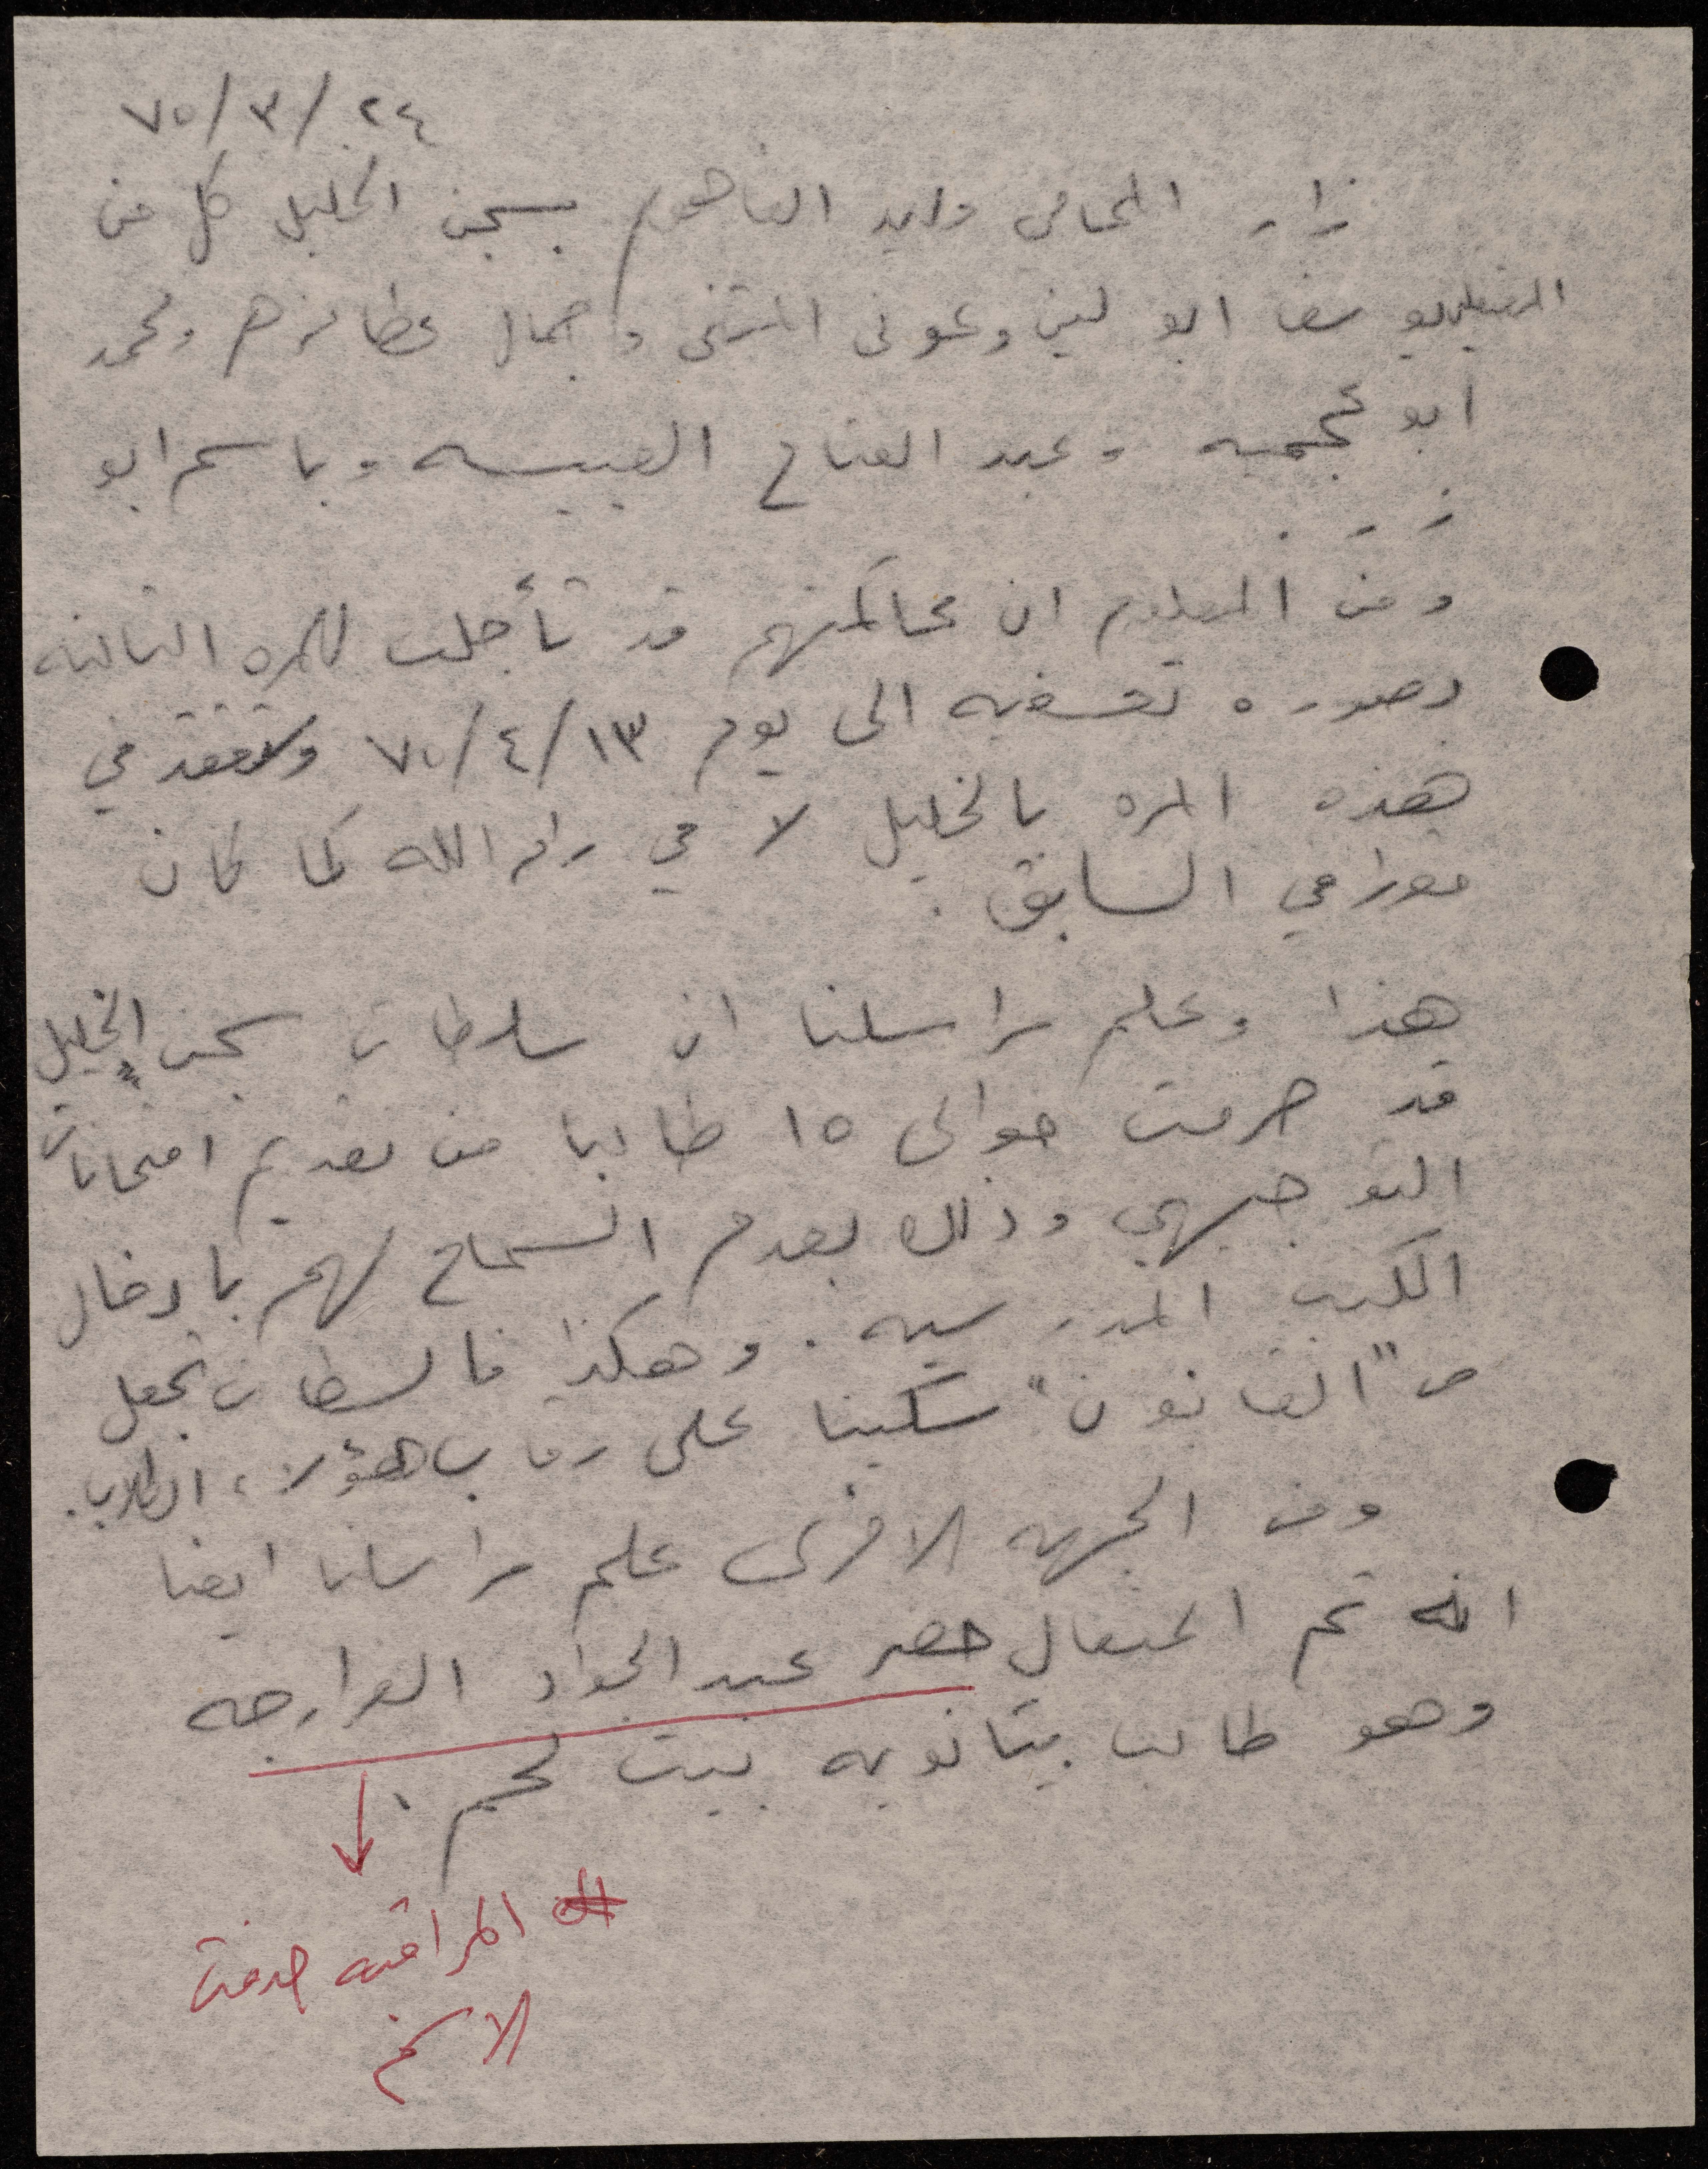 ٢٤/٣/٧٥
زار المحامي وليد الفاهوم بسجن الخليل كل من
ابو لبن وعوني المشني وجمال عطا زهر ومحمد
ابو عجميه وعبد الفتاح العبيسه وباسم ابو
زر.
ومن المعلوم ان محاكمتهم قد تأجلت للمره الثالثه
بصوره تعسفيه الى يوم ١٣/٤/٧٥ وستعقد في
هذه المره بالخليل لا في رام الله كما كان
مقررا في السابق.
هذا وعلم مراسلنا ان سلطات سجن الخليل
قد حرمت حوالي ١٥ طالبا من تقديم امتحانات
التوجيهي وذلك بعدم السماح لهم بادخال
الكتب المدرسيه. وهكذا فالسلطات تجعل
من "القانون" سكينا على رقاب هؤلاء الطلاب.
ومن الجهه الاخرى علم مراسلنا ايضا
انه تم اعتقال خضر عبد الجواد العوارجه
وهو طالب بثانويه بيت لحم.
المراقبه حذفت
الاسم